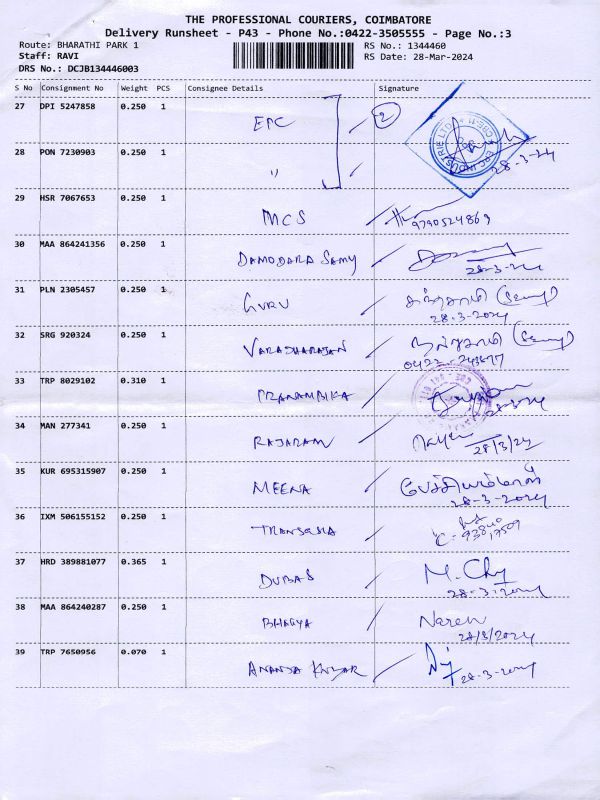 THE PROFESSIONAL COURIERS, COIMBATORE
Delivery Runsheet - P43 - Phone No.:0422-3505555 - Page No.:3
Route: BHARATHI PARK 1 RS No.: 1344460
Staff: RAVI RS Date: 28-Mar-2024
DRS No.: DCJB134446003
S No Consignment No Weight PCS Consignee Details Signature
27 DPI 5247858 0.250 1 EPC 2
28 PON 7230903 0.250 1 〃 28-3-24
29 HSR 7067653 0.250 1 MCS 9790524869
30 MAA 864241356 0.250 1 DAMODARA SAMY 28-3-24
31 PLN 2305457 0.250 1 GURU 28.3-2024
32 SRG 920324 0.250 1 VARADHARAJAN
33 TRP 8029102 0.310 1 PRANAMBIKA
34 MAN 277341 0.250 1 RAJARAM 28/3/24
35 KUR 695315907 0.250 1 MEENA 28-3-2024
36 IXM 506155152 0.250 1
37 HRD 389881077 0.365 1 M. 28-3-2024
38 MAA 864240287 0.250 1 BHAGYA Naren
28/3/2024
39 TRP 7650956 0.070 1 ANANDA KUMAR 28-3-2024